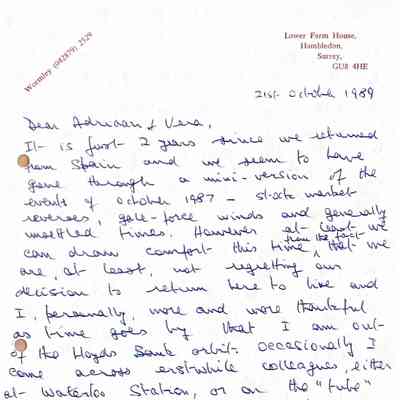 Wormley (042879) 2529
Lower Farm House,
Hambledon,
Surrey,
GU8 4HE
21st October 1989
Dear Adriaan & Vera,
It is just 2 years since we returned
from Spain and we seem to have
gone through a mini-version of the
events of October 1987 - stock market
reverses, gale-force winds and generally
unsettled times. However at least we
can draw comfort this time from the fact that we
are, at least, not regretting our
decision to return here to live and
I, personally, more and more thankful
as time goes by that I am out-
of the Lloyds Bank orbit. Occasionally I
come across erstwhile colleagues, either
at Waterloo Station, or on the "tube"